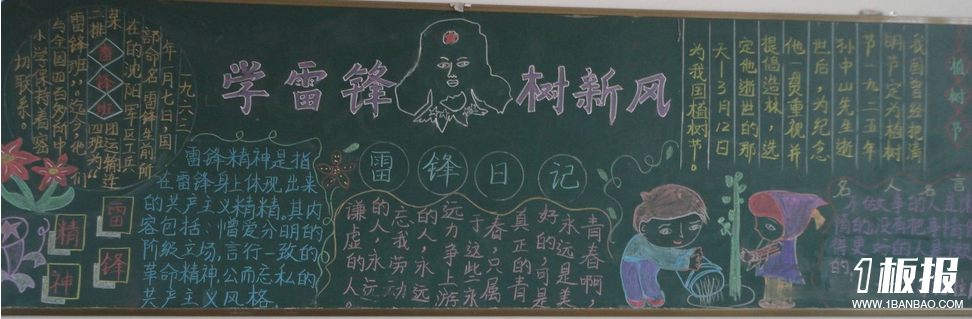 学雷锋 树新风
一九六三
年一月七日,国
部命名雷锋生前所
在的沈阳军区工兵
某团运输连
二排四班为“
雷锋班”。迄今,他们
与全国四百多所中
小学保持着密
切联系。
雷锋班
雷锋
精神
雷锋精神是指
在雷锋身上体现出来
的共产主义精精。其内
容包括:憎爱分明的
阶级立场,言行一致的
革命精神,公而忘私的
共产主义风格。
雷锋日记
青春啊,
永远是美
好的,可是
真正的青
春,只属
于这些永
远力争上游
的人,永远
忘我劳动
的人,永远
谦虚的人。
植树节
我国曾经把清
明节定为植树
节。一九二五年
孙中山先生逝
世后,为纪念
他一贯重视并
提倡造林,选
定他逝世的那
天—3月12日
为我国植树节。
名人名言
1板报
WWW.1BANBAO.COM